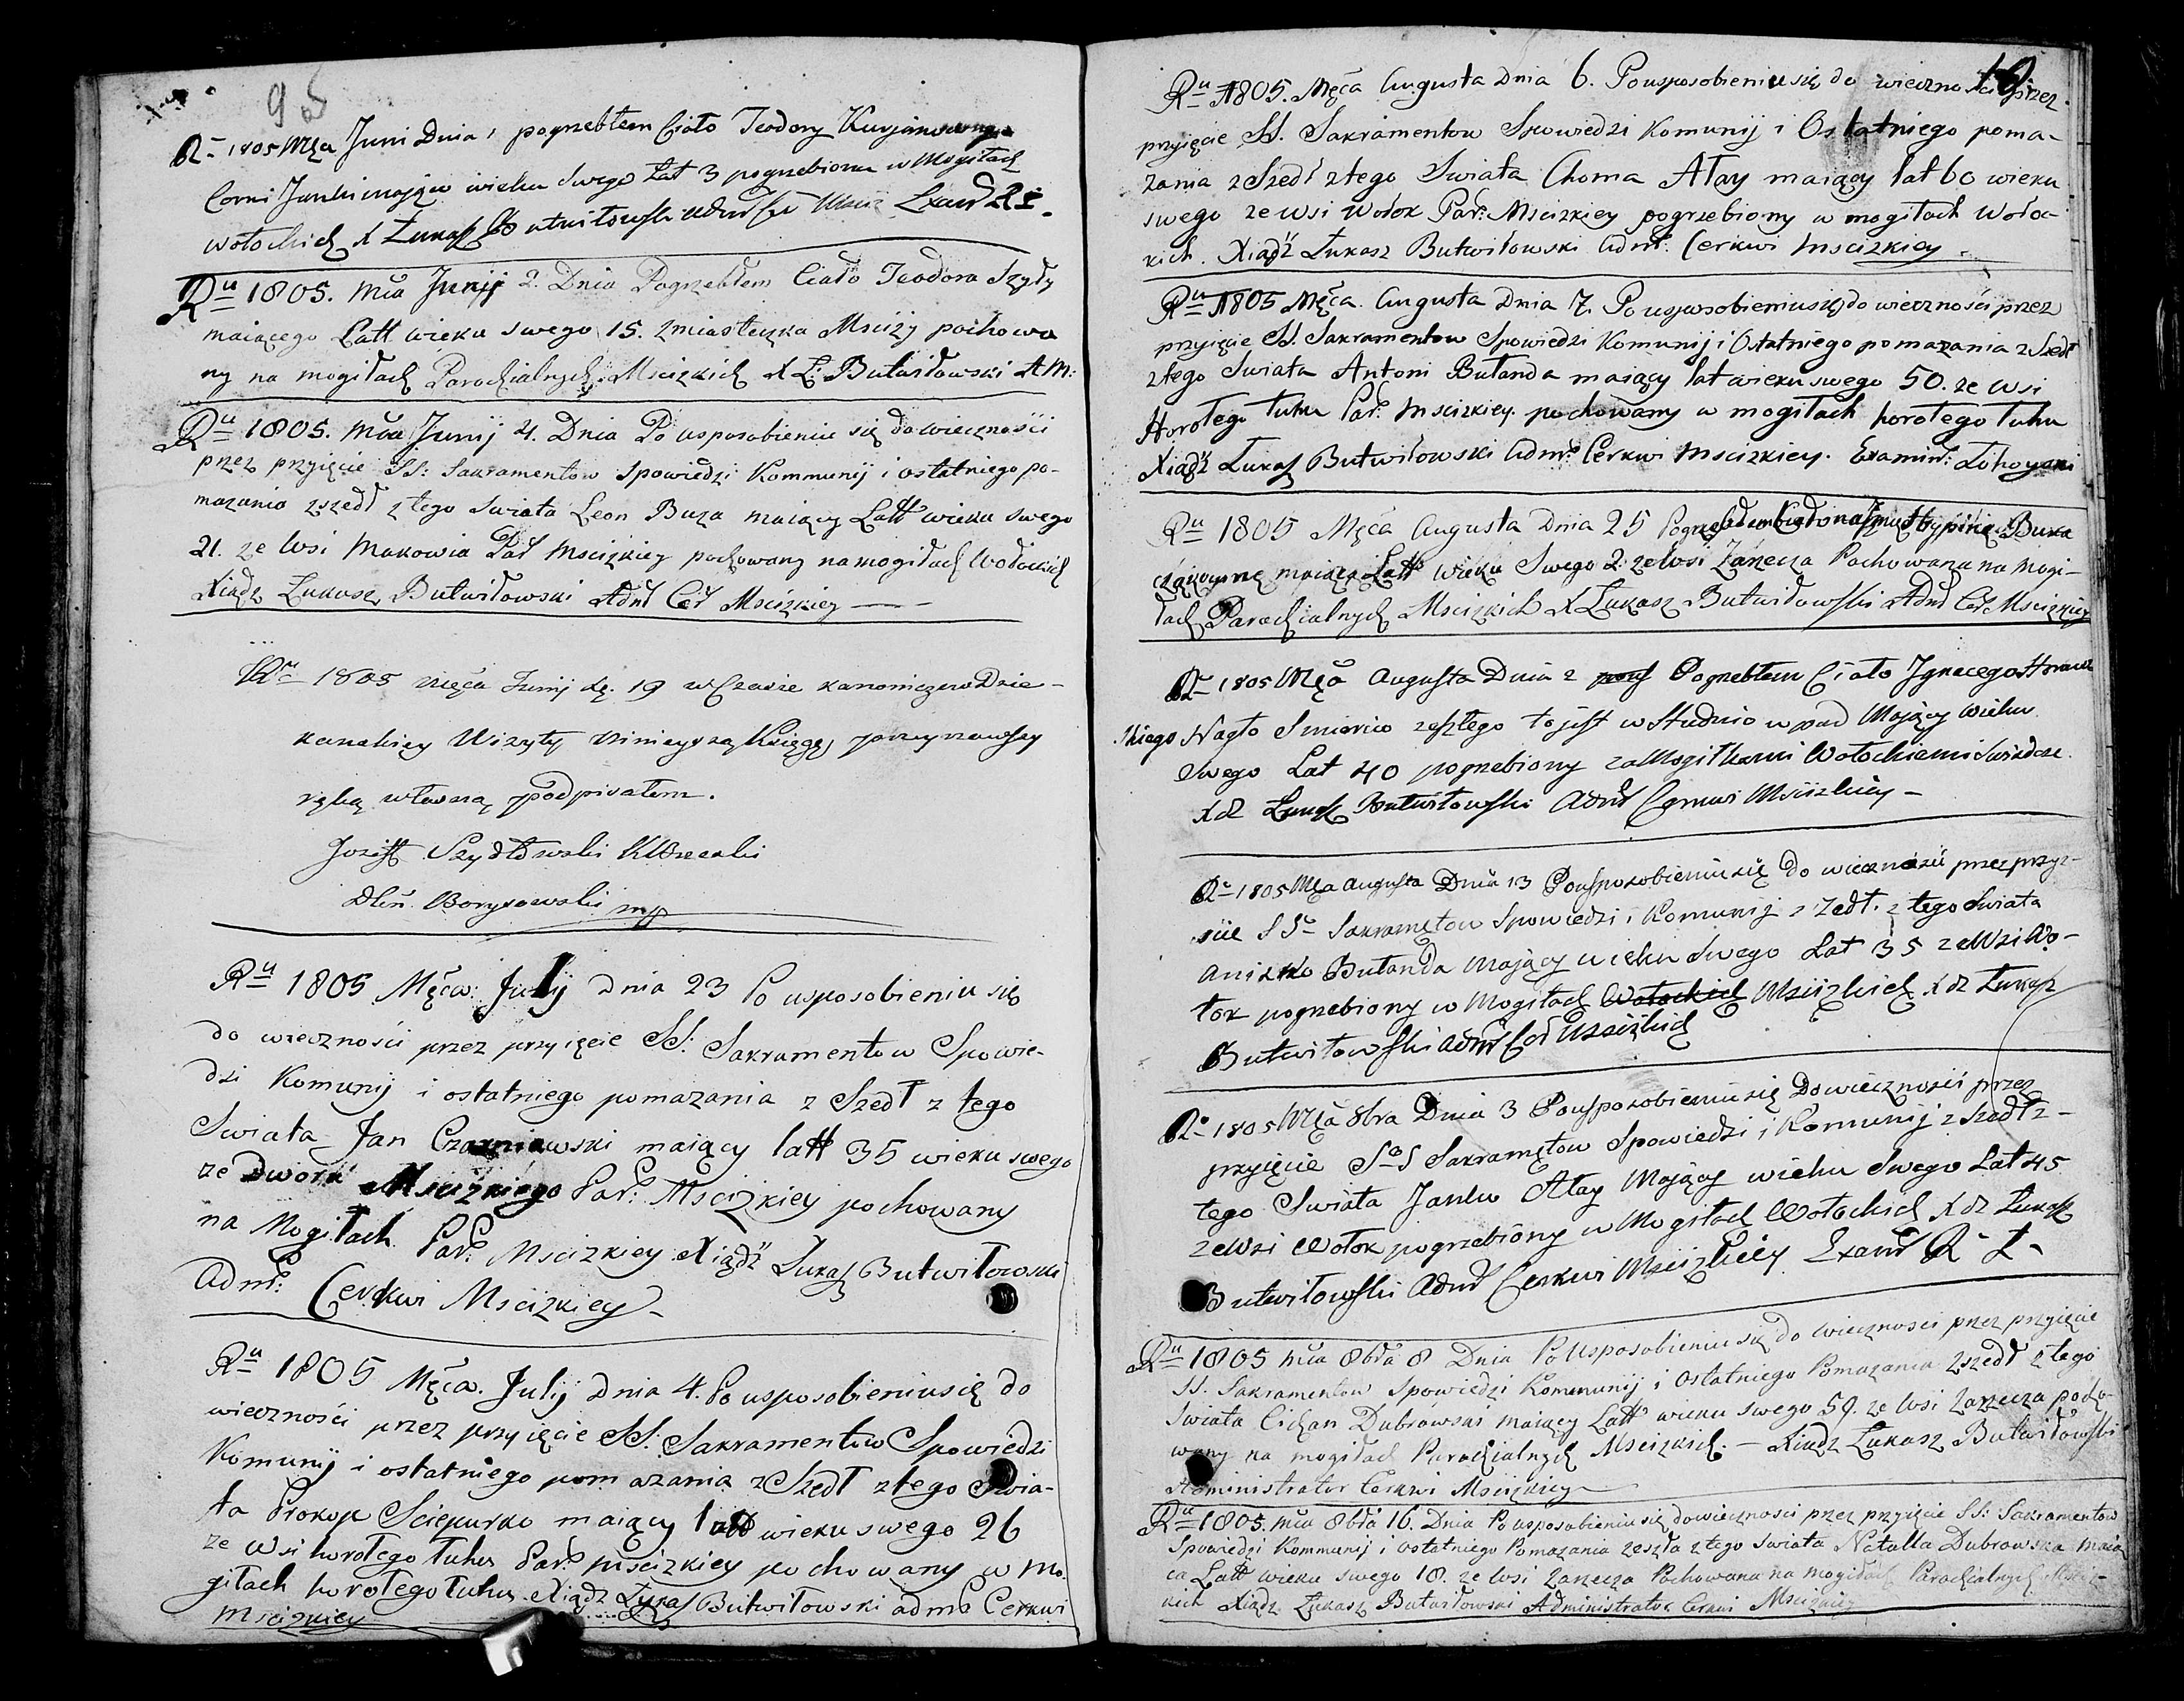 95
Ru 1805 Mca Juni Dnia 1 pogrzebłem Ciało Teodory
Corni Janki mająca wieku Swego Lat 3 pogrzebiona w Mogiłach
wołockich X Łukasz Butwiłowski Adm
Ru 1805. Mca Junij 2. Dnia Pogrzebłem Ciało Teodora Szyły
maiącego Latt wieku swego 15. z miasteczka Mściży pochowa
ny na mogiłach Parochialnych Mscizkich X Ł: Butwiłowski AM:
Ru 1805. Mca Junij 4. Dnia Po usposobieniu się do wieczności
przez przyięcie SS: Sakramentow Spowiedzi Kommunij i ostatniego po-
mazania zszedł z tego Swiata Leon Buza maiący Latt wieku swego
21. ze Wsi Makowia Par Mscizkiey pochowany na mogiłach Wołockich
Xiądz Łukasz Butwiłowski Adm Cer Mscizkiey
Ru 1805 mięca Junij d. 19 w Czasie kanoniczno Dzie-
kanskiey Wizyty ninieyszą Księgę przeyrzawszy
ręką własną podpisałem.
Jozeff Szydłowski
Dzien. Borysowski mp
Ru 1805 Męca: Julij Dnia 23 Po usposobieniu się
do wieczności przez przyięcie SS: Sakramentow Spowie-
dzi Komunij i ostatniego pomazania z Szedł z tego
Swiata Jan Czarniawski maiący latt 35 wieku swego
ze Dworu Mscizkiego Par: Mscizkiey pochowany
na Mogiłach Par: Mscizkiey Xiądz Łukasz Butwiłowski
Adm: Cerkwi Mscizkiey
Ru 1805 Męca. Julij Dnia 4. Po usposobieniu się do
wieczności przez przyięcie SS: Sakramentow Spowiedzi
Komunij i ostatniego pomazania z Szedł z tego Swia-
ta Prokop Sciepurko maiący latt wieku swego 26
ze Wsi horołego łuhu Par: Mscizkiey pochowany w mo-
giłach horołego łuhu Xiądz Łukasz Butwiłowski adm: Cerkwi
Mscizkiey
10
Ru 1805. Męca Augusta Dnia 6. Po usposobieniu się do wieczności przez
przyięcie SS. Sakramentow Spowiedzi Komunij i Ostatniego poma-
zania z Szedł z tego Swiata Choma Atay maiący lat 60 wieku
swego ze wsi Wołok Par: Mscizkiey pogrzebiony w mogiłach Woło-
kich. Xiądz Łukasz Butwiłowski Adm: Cerkwi Mscizkiey
Ru 1805 Męca. Augusta Dnia 7. Po usposobieniu się do wieczności przez
przyięcie SS. Sakramentow Spowiedzi Komunij i Ostatniego pomazania z Szedł
z tego Swiata Antoni Butanda maiący lat wieku swego 50. ze Wsi
Horołego łuhu Par: Mscizkiey. pochowany w mogiłach horołego łuhu
Xiądz Łukasz Butwiłowski Adm: Cerkwi Mscizkiey. Examin:
Ru 1805 Męca Augusta Dnia 25 Buka
maiącą Latt wieku Swego 2. ze Wsi Zarzecza Pochowana na Mogi-
łach Parochialnych Mscizkich X Łukasz Butwiłowski Adm Cer Mscizkiey
Ru 1805 Męca Augusta Dnia 2 Pogrzebłem Ciało Jgnacego
skiego Nagło Smiercio zeszłego to jest w Studnio upad Mający Wieku
Swego Lat 40 pogrzebiony za Mogiłkami Wołockiemi Swiadcze
X dz Łukasz Butwiłowski Adm Cerkwi Mscizkiey
Ru 1805 Męca Augusta Dnia 13 Po usposobieniu się do wieczności przez przy-
Sakramętow Spowiedzi i Komunij z Szedł z tego Swiata
Aniszko Butanda Mający wieku Swego Lat 35 ze Wsi Wo-
łok pogrzebiony w Mogiłach Wołockich Mscizkich X dz Łukasz
Butwiłowski Adm Cer Mscizkiey
Ru 1805 Męca 8bra Dnia 3 Po usposobieniu się Do wieczności przez
przyięcie Sakramętow Spowiedzi i Komunij z Szedł z
tego Swiata Janko Atay Mający wieku Swego Lat 45
ze Wsi Wołok pogrzebiony w Mogiłach Wołockich X dz Łukasz
Butwiłowski Adm Cerkwi Mscizkiey
Ru 1805 Mca 8bra 8 Dnia Po Usposobieniu się do wieczności przez przyięcie
SS. Sakramentow Spowiedzi Kommunij i Ostatniego Pomazania zszedł z tego
Swiata Cichan Dubrowski maiący Latt wieku swego 59. ze Wsi Zarzecza pocho-
wany na mogiłach Parochialnych Mscizkich. Xiądz Łukasz Butwiłowski
Administrator Cerkwi Mscizkiey
Ru 1805. Mca 8bra 16. Dnia Po usposobieniu się do wieczności przez przyięcie SS: Sakramentow
Spowiedzi Kommunij i ostatniego Pomazania zeszła z tego Swiata Natalla Dubrowska maią
ca Latt wieku swego 18. ze Wsi Zarzecza Pochowana na mogiłach Parochialnych
kich Xiądz Łukasz Butwiłowski Administrator Cerkwi Mscizkiey